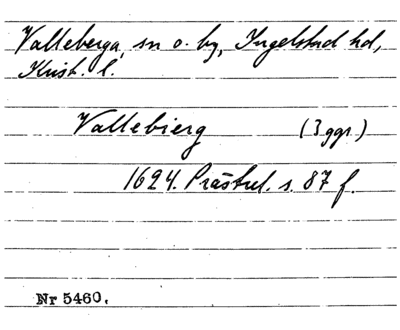 Valleberga, sn o. by, Ingelstad hd,
Krist. l.
Vallebierg (3 ggr.)
1624. Prästrel. s. 87 f.
Nr 5460.